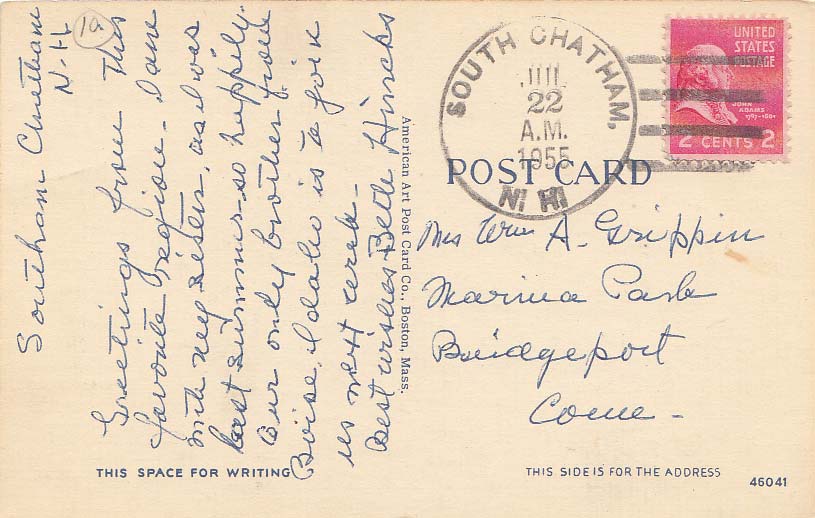 South Chatham
N-H
10
Greetings from this
favorite region - I am
with my sisters, as I was
last summer - so happily.
Our only brother from
Boise, Idaho is to join
us next week -
Best wishes Belle Hincks
THIS SPACE FOR WRITING
American Art Post Card Co., Boston, Mass.
SOUTH CHATHAM,
JUL
22
A.M.
1955
N. H.
UNITED
STATES
POSTAGE
JOHN
ADAMS
1797-1801
2 CENTS 2
POST CARD
Mrs Wm A. Grippin
Marina Park
Bridgeport
Conn -
THIS SIDE IS FOR THE ADDRESS
46041